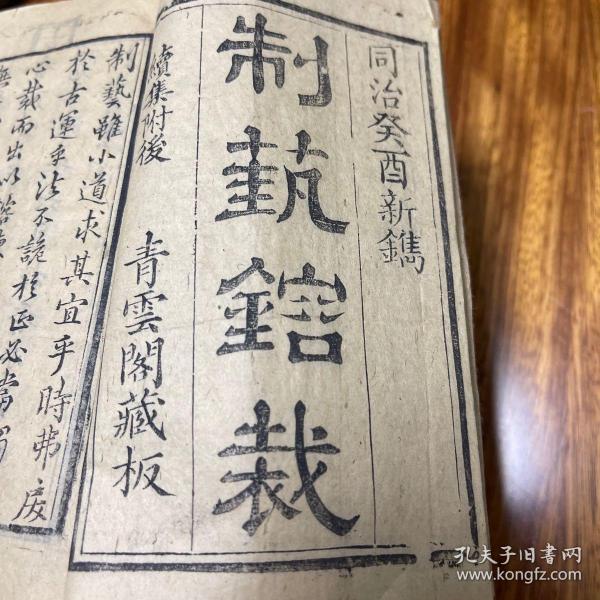 同治癸酉新鐫
制藝鎔裁
續集附後
青雲閣藏板
制藝雖小道求其宜乎時弗戾
於古運乎法不詭於正必當
心裁而出以
孔夫子旧书网
www.kongfz.com